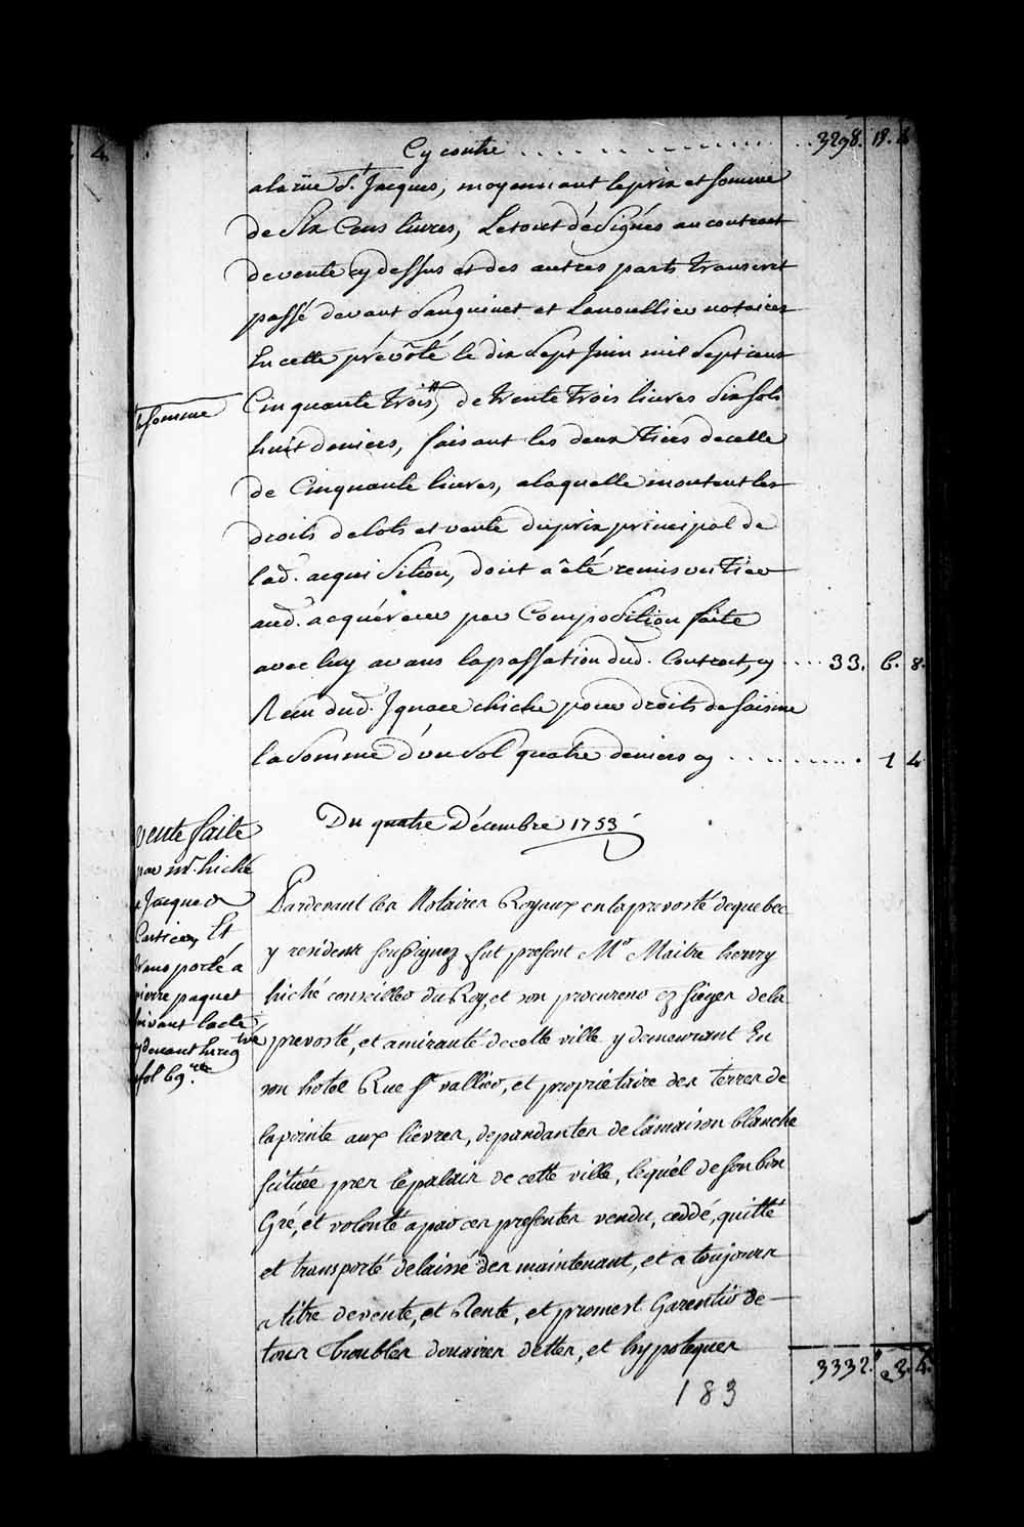 4.
Cy contre . . . . . . . . . . 3298. 18.
a la rüe St. Jacques, moyennant le prix et somme
de Six Cens livres, Le tout désignés au contract
de vente cy dessus et des autres parts transcrit
passé devant Sanguinet et Lanoullier notaires
En cette prévôté le dix Sept Juin mil Sept cent
Cinquante trois, de trente trois livres Six sols
la somme
huit deniers, faisant les deux tiers de celle
de Cinquante livres, a laquelle montent les
droits de lots et vente du prix principal de
lad. acquisition, dont a été remis un tier
aud. acquéreur par Composition faite
avec luy avant la passation dud. Contract, cy . . . . 33. 6. 8.
Reçu dud. Ignace chiché pour droits de saisine
la Somme d'un Sol quatre deniers cy . . . . . . . . . 1 4
Du quatre Décembre 1753
vente faite
par mr. hiché
a Jacques
Cartier, Et
transporté a
pierre paquet
suivant l'acte
cy devant Enregtré
fol 69. re
Pardevant les Notaires Royaux en la prevosté de quebec
y residents soussignez fut present Mr Maitre henry
hiché conseiller du Roy, et son procureur es sieges de la
prevosté, et amirauté de cette ville y demeurant En
son hotel Rue St vallier, et propriétaire des terres de
la pointe aux lievres, dépendantes de la maison blanche
scituée pres le palais de cette ville, lequel de son bon
Gré, et volonté a par ces presentes vendu, ceddé, quitté
et transporté delaissé des maintenant, et a toujours
a titre de vente, et Rente, et promest Garentir de
tous troubles douaires dettes, et hypoteques
3332. 3. 4.
183